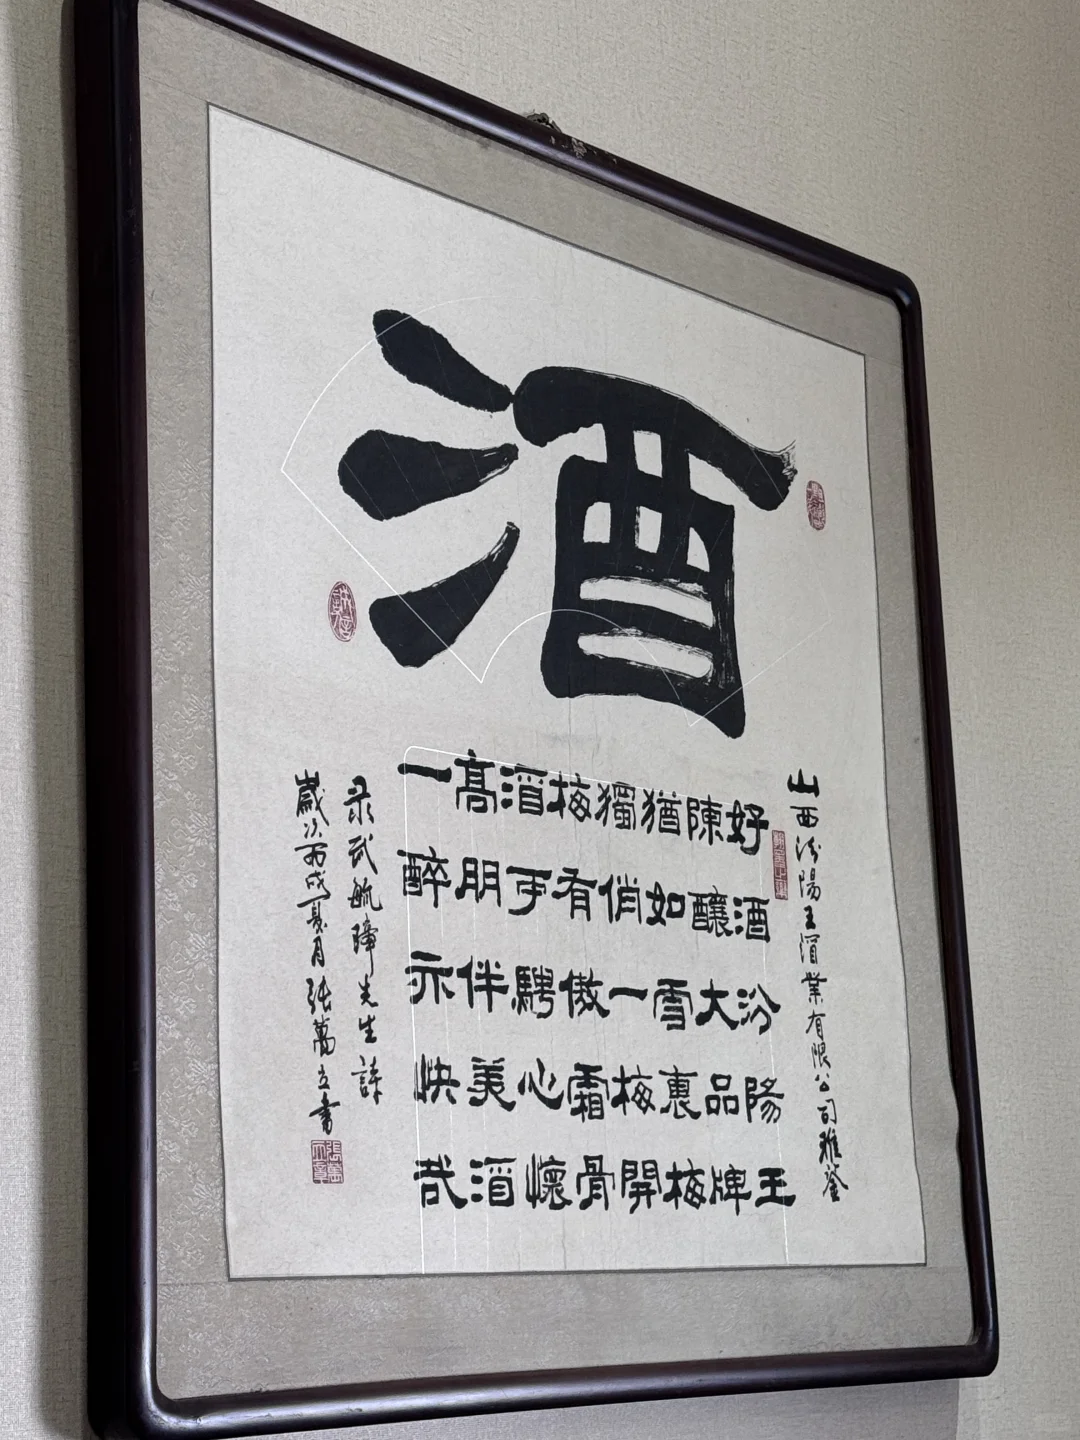 酒
山西汾陽王酒業有限公司雅鉴
好酒汾陽王
陳釀大品牌
猶如雪裏梅
獨俏一梅開
梅有傲霜骨
酒于騁心懷
高朋伴美酒
一醉亦快哉
录武毓璋先生詩
歲次丙戌夏月張萬立書
誠信
張萬立章